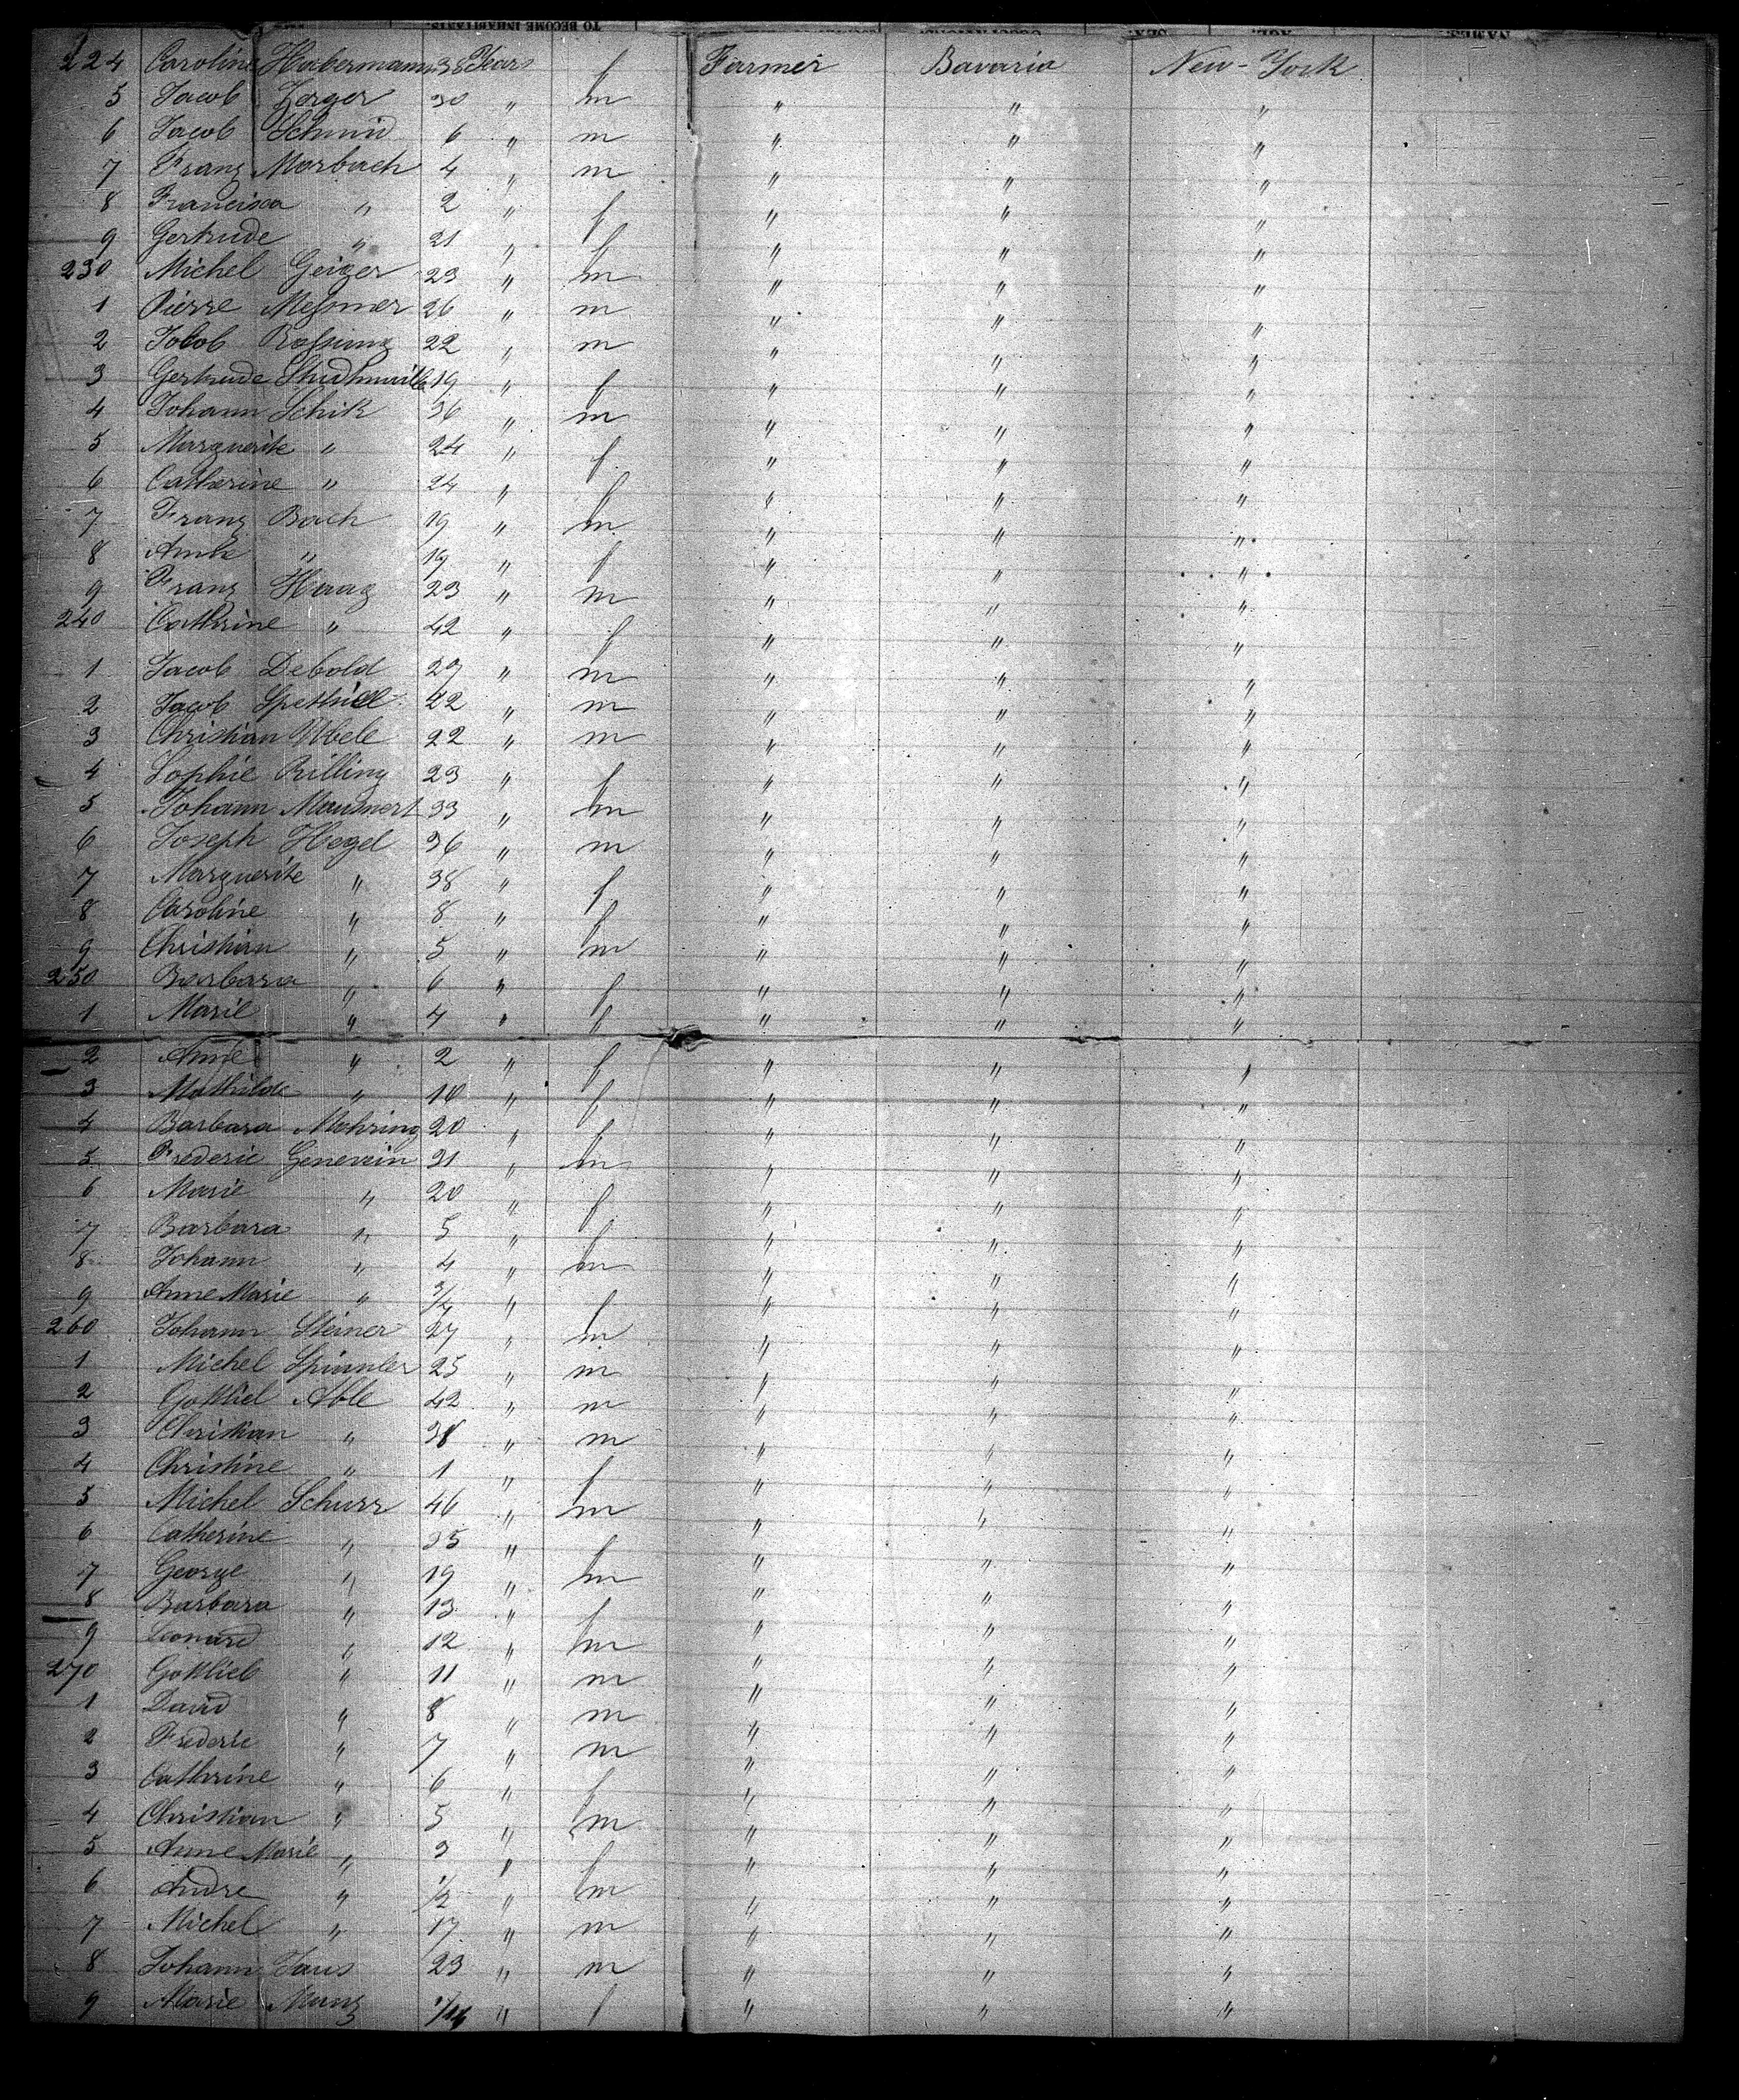 TO BECOME INHABITANTS. OCCUPATIONS. SEX. AGE. NAMES.
224 Caroline Habermann 38 Years f Farmer Bavaria New-York
5 Jacob Zerger 30 " m " " "
6 Jacob Schmid 6 " m " " "
7 Franz Marbach 4 " m " " "
8 Francisca " 2 " f " " "
9 Gertrude " 21 " f " " "
230 Michel Geiger 23 " m " " "
1 Pierre Meßmer 26 " m " " "
2 Jacob 22 " m " " "
3 Gertrude 19 " f " " "
4 Johann Schik 36 " m " " "
5 Marguerite " 24 " f " " "
6 Catherine " 24 " f " " "
7 Franz Bach 19 " m " " "
8 Anna " 19 " f " " "
9 Franz Haag 23 " m " " "
240 Cathrine " 42 " f " " "
1 Jacob Debold 27 " m " " "
2 Jacob 22 " m " " "
3 Christian 22 " m " " "
4 Sophie Rilling 23 " f " " "
5 Johann 33 " m " " "
6 Joseph Hegel 36 " m " " "
7 Marguerite " 38 " f " " "
8 Caroline " 8 " f " " "
9 Christian " 5 " m " " "
250 Barbara " 6 " f " " "
1 Marie " 4 " f " " "
2 Anne " 2 " f " " "
3 Mathilde " 10 " f " " "
4 Barbara Mohring 20 " f " " "
5 Frederic Genevein 31 " m " " "
6 Marie " 20 " f " " "
7 Barbara " 5 " f " " "
8 Johann " 4 " m " " "
9 Anne Marie " 3/4 " f " " "
260 Johann Steiner 27 " m " " "
1 Michel Spinnler 25 " m " " "
2 Gottliel Able 42 " m " " "
3 Christian " 38 " m " " "
4 Christine " 1 " f " " "
5 Michel Schurr 46 " m " " "
6 Catherine " 35 " f " " "
7 George " 19 " m " " "
8 Barbara " 13 " f " " "
9 Leonard " 12 " m " " "
270 Gottlieb " 11 " m " " "
1 David " 8 " m " " "
2 Frederic " 7 " m " " "
3 Cathrine " 6 " f " " "
4 Christian " 5 " m " " "
5 Anne Marie " 3 " f " " "
6 Andre " 1/2 " m " " "
7 Michel " 17 " m " " "
8 Johann 23 " m " " "
9 Marie Manz " f " " "